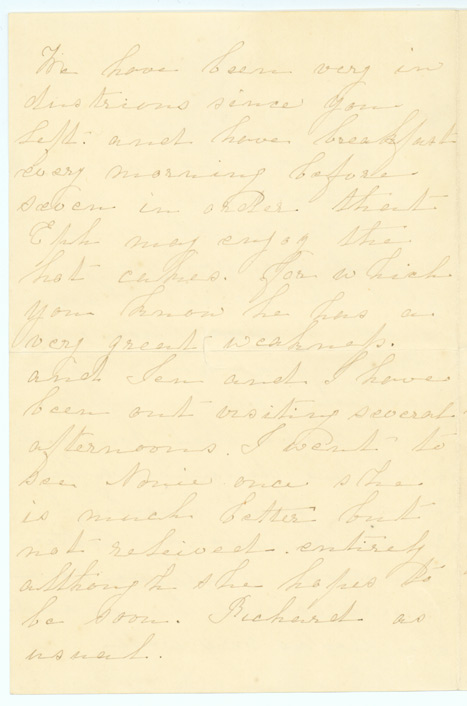 We have been very in
dustrious since you
left. and have breakfast
every morning before
seven in order that
Eph may enjoy the
hot cakes. For which
you know he has a
very great weakness.
and Jen and I have
been out visiting several
afternoons. I went to
see Nonie once she
is much better but
not releived entirely
although she hopes to
be soon. Richard as
usual.